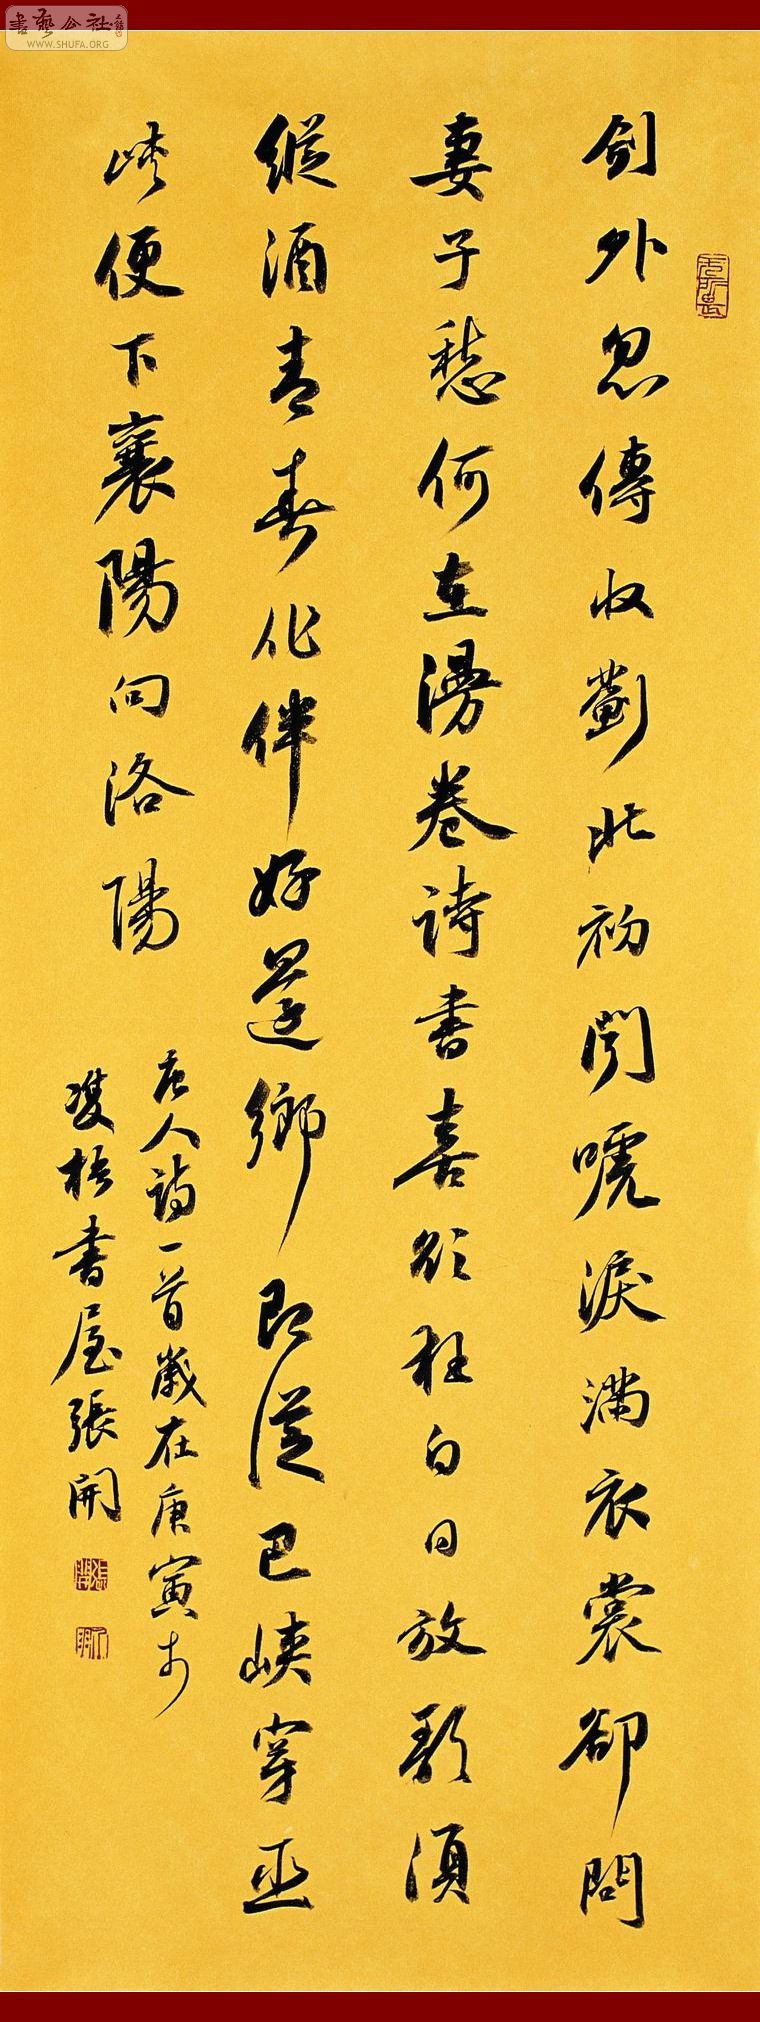 書藝公社
WWW.SHUFA.ORG
劍外忽傳收薊北初聞唬淚滿衣裳卻問
妻子愁何在漫卷詩書喜欲狂白日放歌須
縱酒青春作伴好還鄉即從巴峽穿巫
峽便下襄陽向洛陽
唐人詩一首歲在庚寅於
雙梧書屋張開